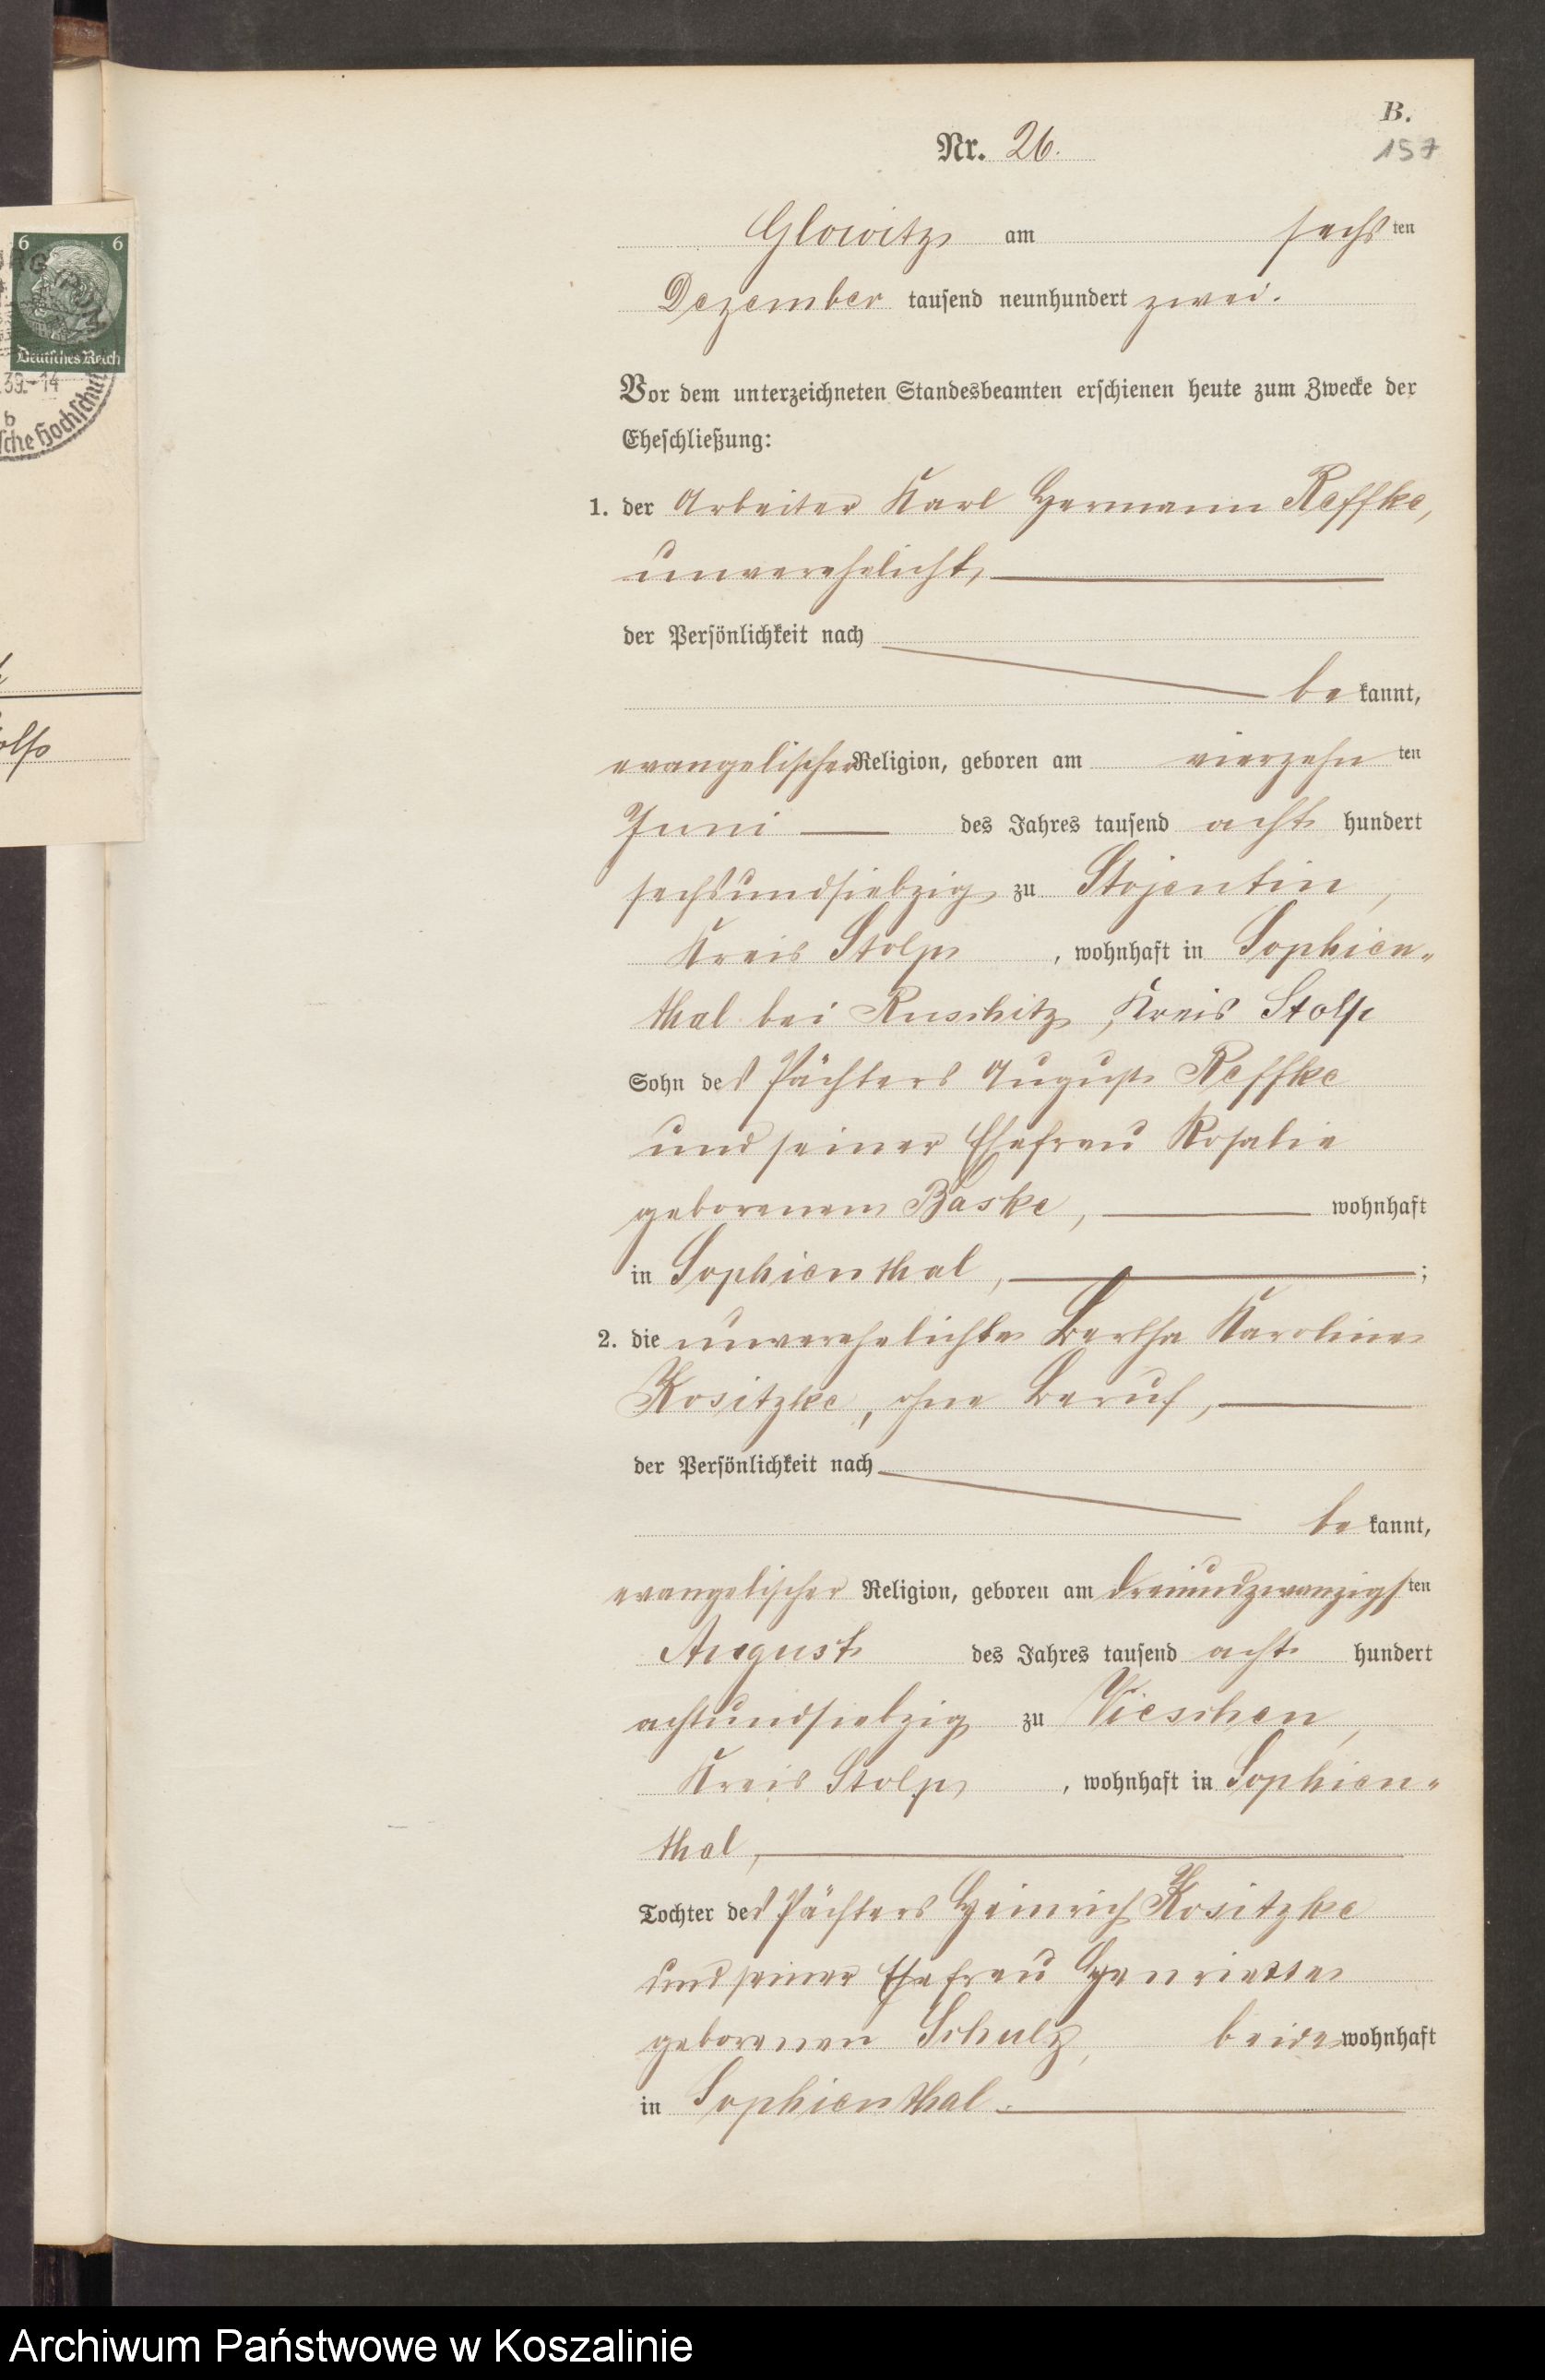 B.
157
Nr. 26.
Glowitz am sechsten
Dezember tausend neunhundert zwei.
Vor dem unterzeichneten Standesbeamten erschienen heute zum Zwecke der
Eheschließung:
1. der Arbeiter Karl Hermann Reffke,
unverehelicht,
der Persönlichkeit nach
bekannt,
evangelischer Religion, geboren am vierzehnten
Juni des Jahres tausend acht hundert
sechsundsiebzig zu Stojentin,
Kreis Stolp, wohnhaft in Sophien-
thal bei Ruschitz, Kreis Stolp
Sohn des Pächters August Reffke
und seiner Ehefrau Rosalie
geborenen Baske, wohnhaft
in Sophienthal,;
2. die unverehelichte Bertha Karoline
Kositzke, ohne Beruf,
der Persönlichkeit nach
bekannt,
evangelischer Religion, geboren am dreiundzwanzigsten
August des Jahres tausend acht hundert
achtundsiebzig zu Vieschen,
Kreis Stolp, wohnhaft in Sophien-
thal,
Tochter des Pächters Heinrich Kositzke
und seiner Ehefrau Henriette
geborenen Schulz, beide wohnhaft
in Sophienthal.
6 6
Deutsches Reich
39.-14
b
sche Hochschul
olp
Archiwum Państwowe w Koszalinie